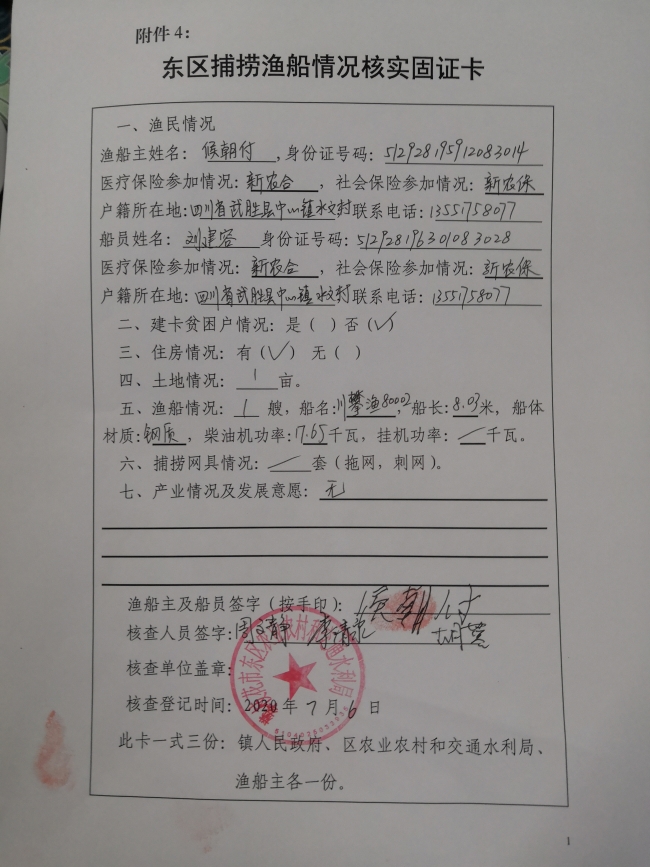 附件4：
东区捕捞渔船情况核实固证卡
一、渔民情况
渔船主姓名：候朝付，身份证号码：512928195912083014
医疗保险参加情况：新农合，社会保险参加情况：新农保
户籍所在地：四川省武胜县中心镇水文村联系电话：13551758077
船员姓名：刘建容 身份证号码：512928196301083028
医疗保险参加情况：新农合，社会保险参加情况：新农保
户籍所在地：四川省武胜县中心镇水文村联系电话：13551758077
二、建卡贫困户情况：是（ ）否（✓）
三、住房情况：有（✓） 无（ ）
四、土地情况：1亩。
五、渔船情况：1艘，船名：川攀渔80002，船长：8.03米，船体
材质：钢质，柴油机功率：17.65千瓦，挂机功率：/千瓦。
六、捕捞网具情况：/套（拖网，刺网）。
七、产业情况及发展意愿：无
渔船主及船员签字（按手印）：候朝付
核查人员签字：
核查单位盖章：
核查登记时间：2020年7月6日
此卡一式三份：镇人民政府、区农业农村和交通水利局、
渔船主各一份。
1